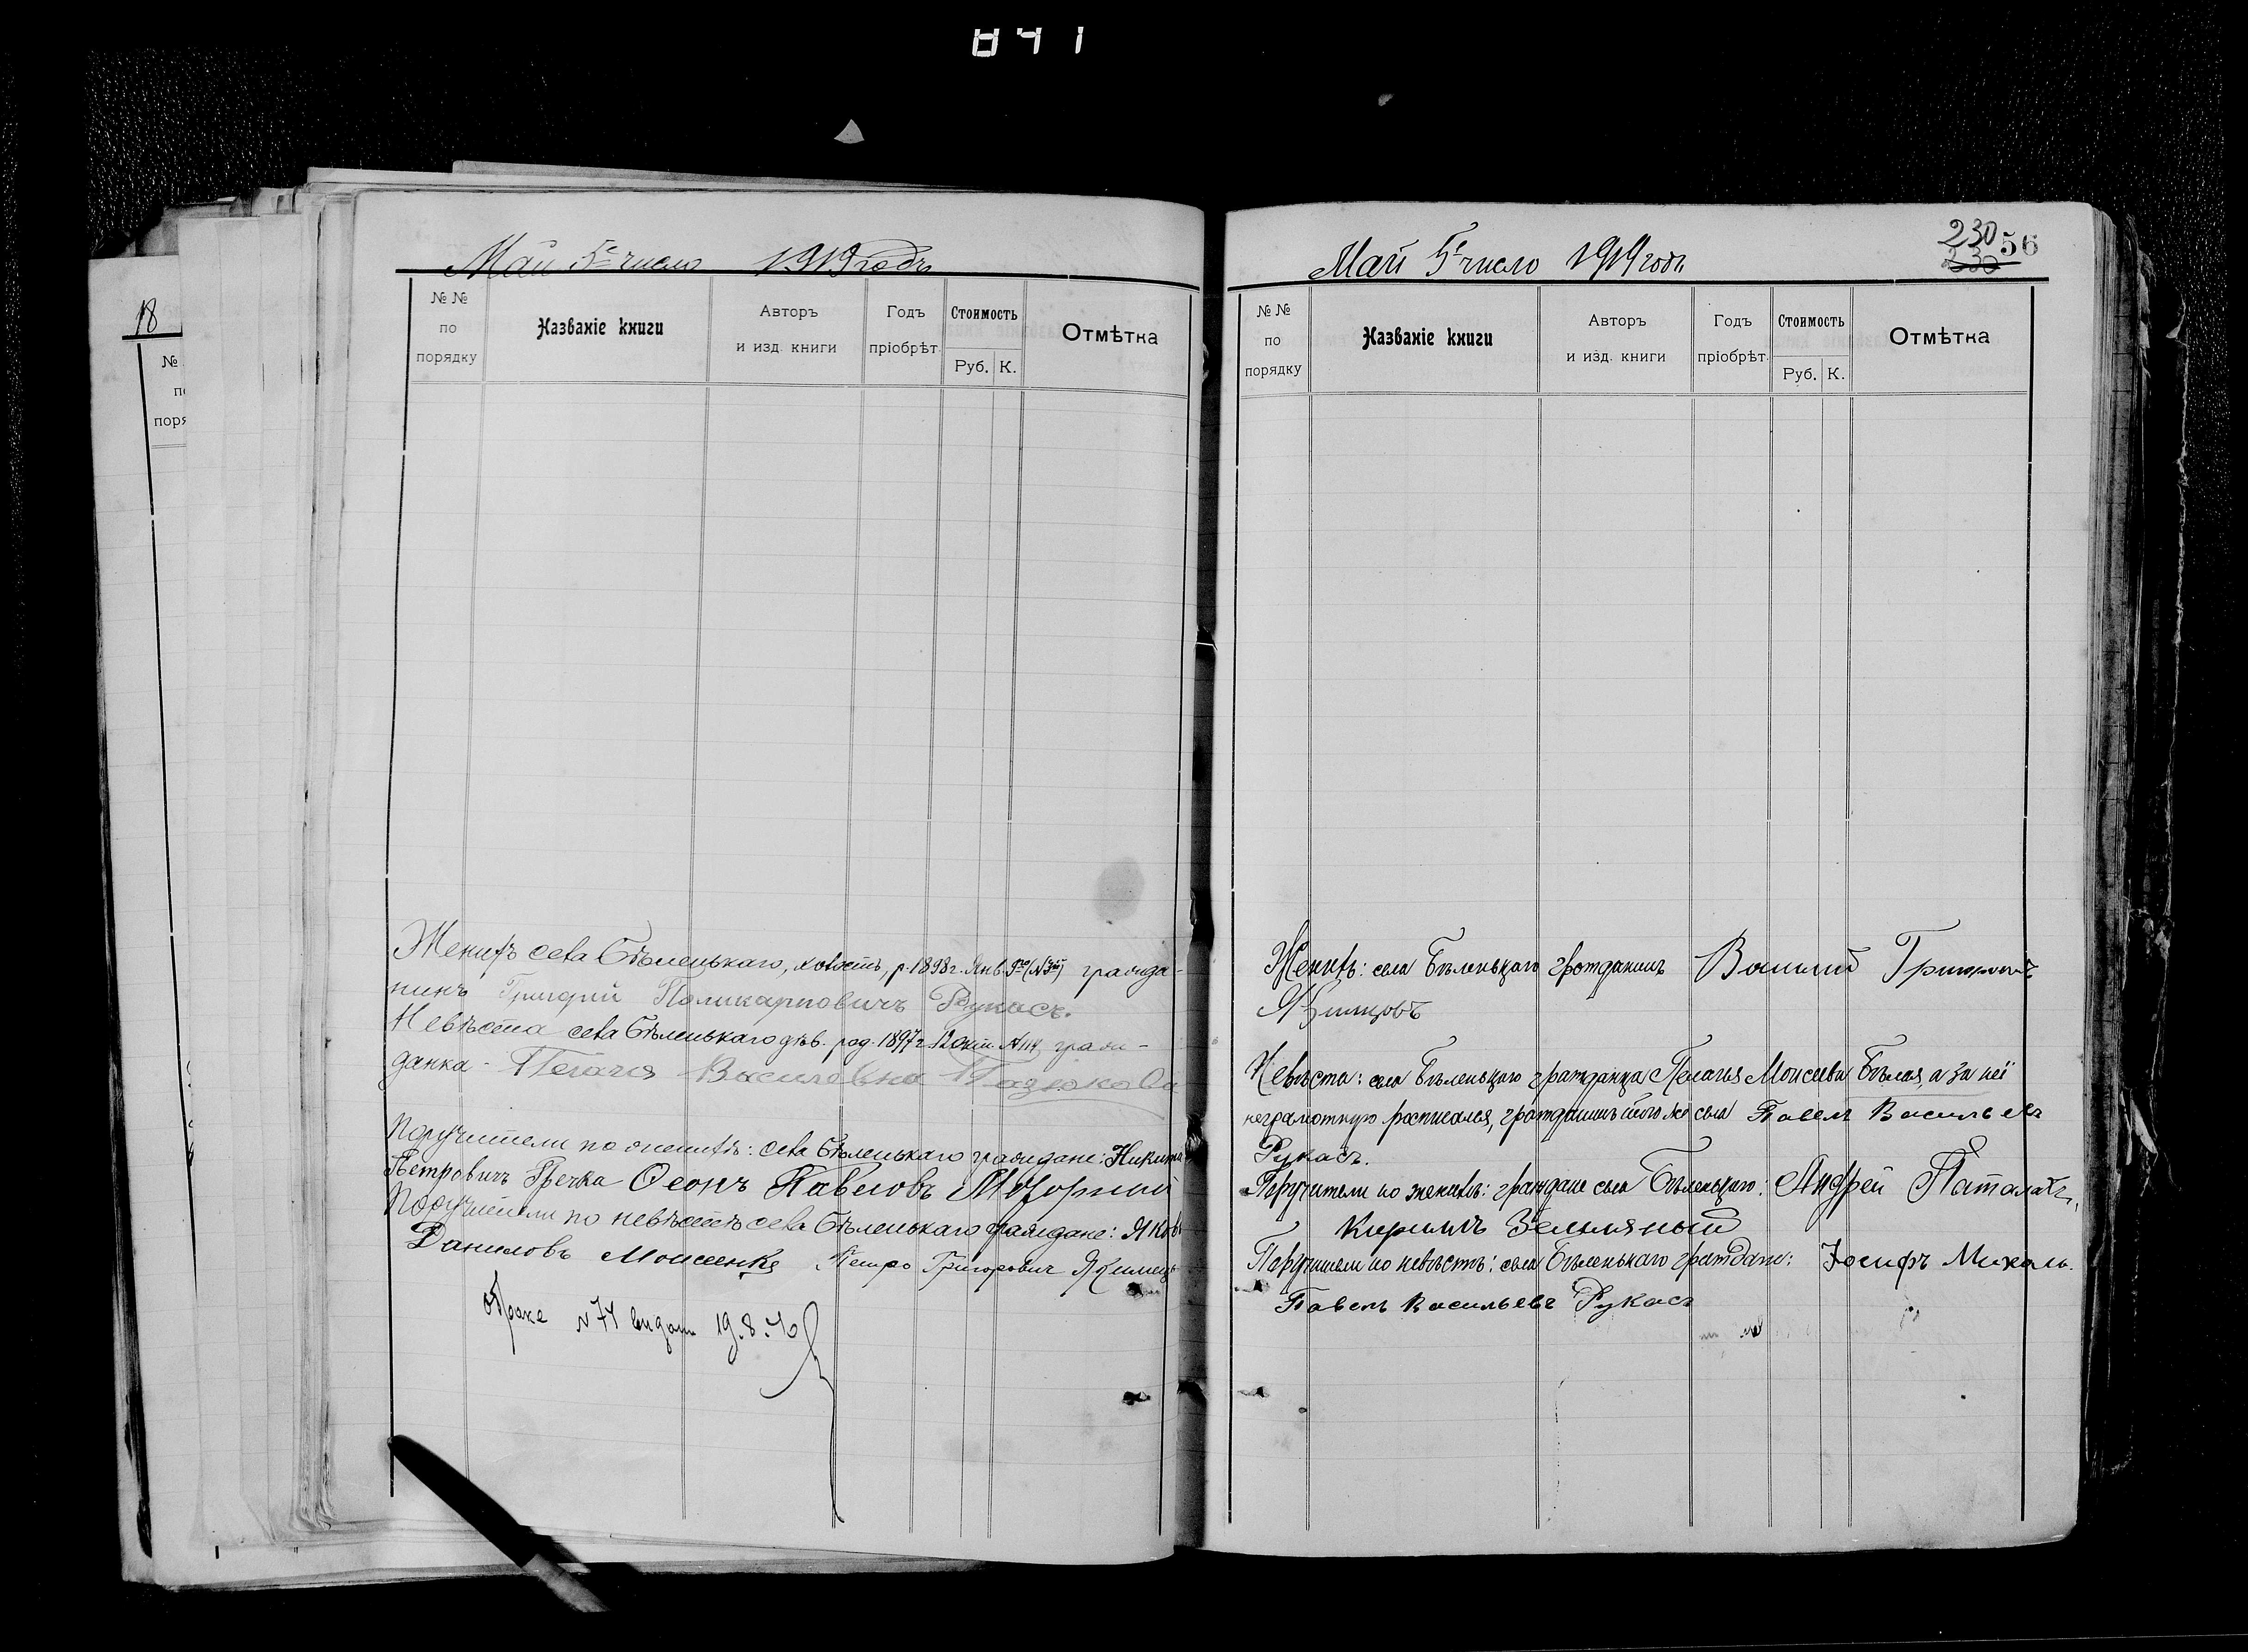 841
18
№
по
поря
Май 5е число 1919 годъ
№ №
по
порядку
Названіе книги
Авторъ
и изд. книги
Годъ
пріобрѣт.
Стоимость
Руб. К.
Отмѣтка
Женихъ села Бѣленькаго, холостъ, р. 1898 г. Янв. 9го (№ 3й) гражда-
нинъ Григорій Поликарповичъ Рукасъ.
Невѣста села Бѣленькаго дѣв. род. 1897 г. 12 окт. № 114, граж-
данка - Пелагія Василовна
Поручители по женихѣ: села Бѣленькаго граждане: Никита
Петровичъ Гречка Павловъ
Поручители по невѣстѣ села Бѣленькаго граждане: Яковъ
Даниловъ Моисеенко Петро Григорович Якимець
О браке № 74 выдан 19.8.40
Май 5е число 1919 годъ
230 56
230
№ №
по
порядку
Названіе книги
Авторъ
и изд. книги
Годъ
пріобрѣт.
Стоимость
Руб. К.
Отмѣтка
Женихъ: села Бѣленькаго гражданинъ
Невѣста: села Бѣленькаго гражданка Пелагья Моисеева Бѣлая, а за неї
неграмотную росписался, гражданинъ того же села Павелъ Васильевъ
Рукасъ.
Поручители по женихѣ: граждане села Бѣленькаго: Андрей
Кирилъ Земляный
Поручители по невѣстѣ: села Бѣленькаго граждане: Іосифъ Михаль.
Павелъ Васильевъ Рукасъ